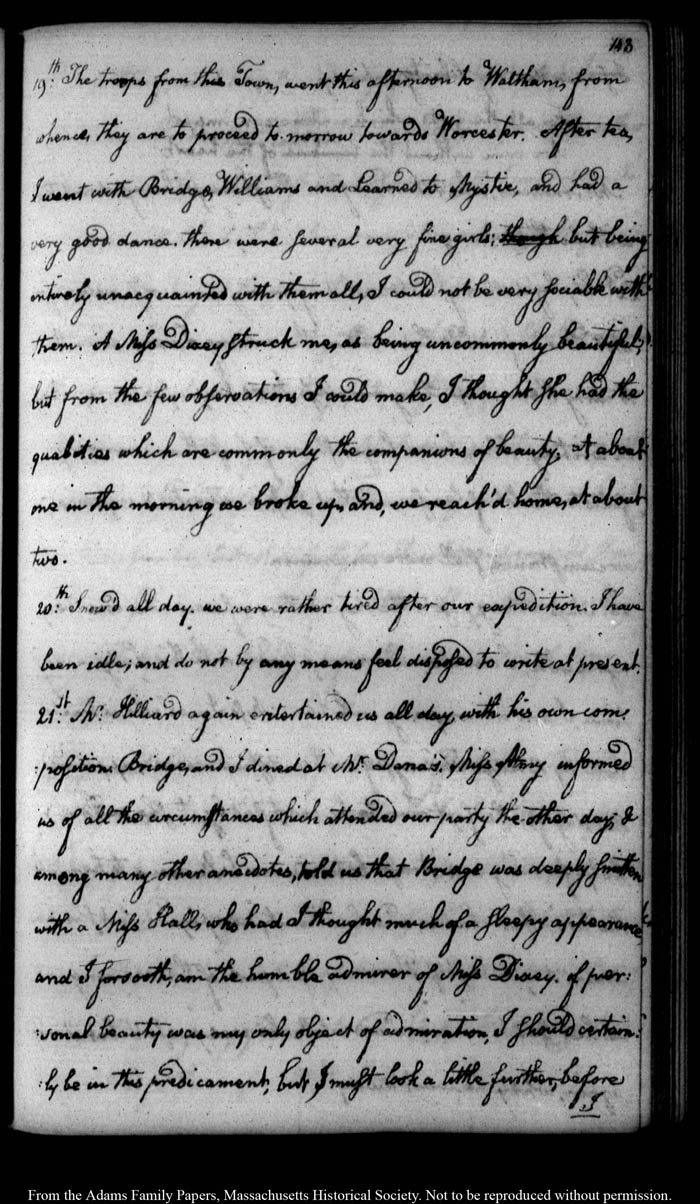 143
19th: The troops from this Town, went this afternoon to Waltham, from
whence, they are to proceed to-morrow towards Worcester. After tea,
I went with Bridge, Williams and Learned to Mystic, and had a
very good dance. there were several very fine girls; though but being
entirely unacquainted with them all, I could not be very sociable with
them. A Miss Dixey struck me, as being uncommonly beautiful;
but from the few observations I could make, I thought she had the
qualities which are commonly the companions of beauty, at about
one in the morning we broke up, and, we reach'd home, at about
two.
20th: Snow'd all day. we were rather tired after our expedition. I have
been idle; and do not by any means feel disposed to write at present.
21st: Mr. Hilliard again entertained us all day, with his own com:
:position. Bridge, and I dined at Mr. Dana's. Miss Almy informed
us of all the circumstances which attended our party the other day; &
among many other anecdotes, told us that Bridge was deeply smitten
with a Miss Hall, who had I thought much of a sleepy appearance,
and I forsooth, am the humble admirer of Miss Dixey. if per:
:sonal beauty was my only object of admiration, I should certain:
:ly be in this predicament, but I must look a little further, before
I
From the Adams Family Papers, Massachusetts Historical Society. Not to be reproduced without permission.